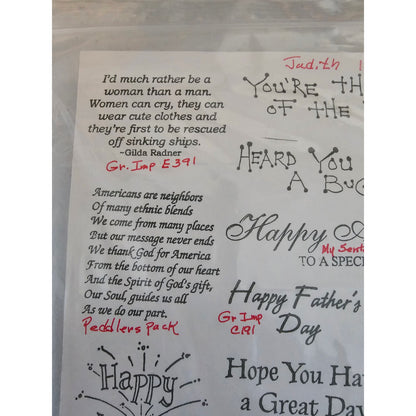 I'd much rather be a
woman than a man.
Women can cry, they can
wear cute clothes and
they're first to be rescued
off sinking ships.
~Gilda Radner
Gr. Imp E391
Americans are neighbors
Of many ethnic blends
We come from many places
But our message never ends
We thank God for America
From the bottom of our heart
And the Spirit of God's gift,
Our Soul, guides us all
As we do our part.
Peddlers Pack
Happy
Judith
YOU'RE
OF THE
HEARD YOU
A
Happy
My
TO A
Happy Father's
Day
Gr Imp
C191
Hope You
a Great Day